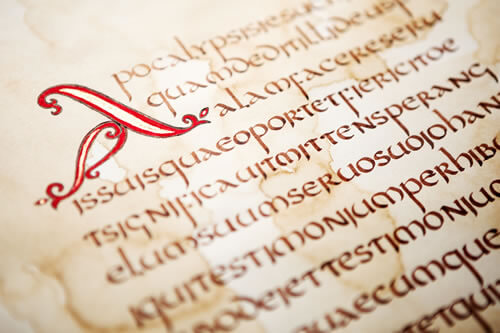 Apocalypsisjesu
quamdeditillideus
alamfacereseru
issuisquaeoportetfiericitoe
tsignificauitmittensperang
elumsuumseruosuojohan
iquitestimonjumperhib
bodejettestimonju
uaecumque